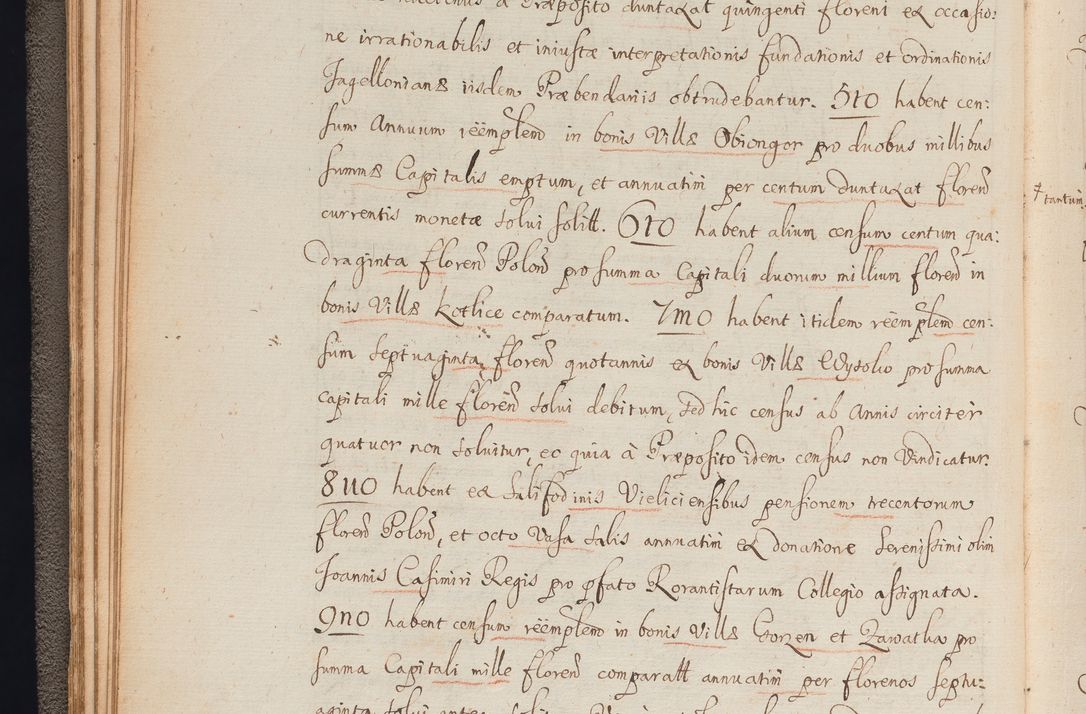 à Præposito duntaxat quingenti floreni ex occasio:
ne irrationabilis et iniustæ interpretationis fundationis et ordinationis
Jagellonianæ iisdem Præbendariis obtrudebantur. 5to habent cen:
sum Annuum reëmptem in bonis Villæ Obiongor pro duobus millibus
summæ Capitalis emptum, et annuatim per centum duntaxat floren
currentis monetæ solui solitt. 6to habent alium censum centum qua:
draginta floren Polon pro summa Capitali duorum millium floren in
bonis Villæ Kotlice comparatum. 7mo habent itidem reëmptem cen:
sum septuaginta floren quotannis ex bonis Villæ pro summa
capitali mille floren solui debitum, sed hic census ab Annis circiter
quatuor non soluitur, eo quia à Præposito idem census non Vindicatur.
8uo habent ex Salisfodinis Vieliciensibus pensionem trecentorum
floren Polon, et octo Vasa Salis annuatim ex donatione Serenissimi olim
Joannis Casimiri Regis pro pfato Rorantistarum Collegio assignata.
9no habent censum reëmptem in bonis Villæ Gorzen et Zawatka pro
summa Capitali mille floren comparatt annuatim per florenos septu:
aginta solui
‡ tantum